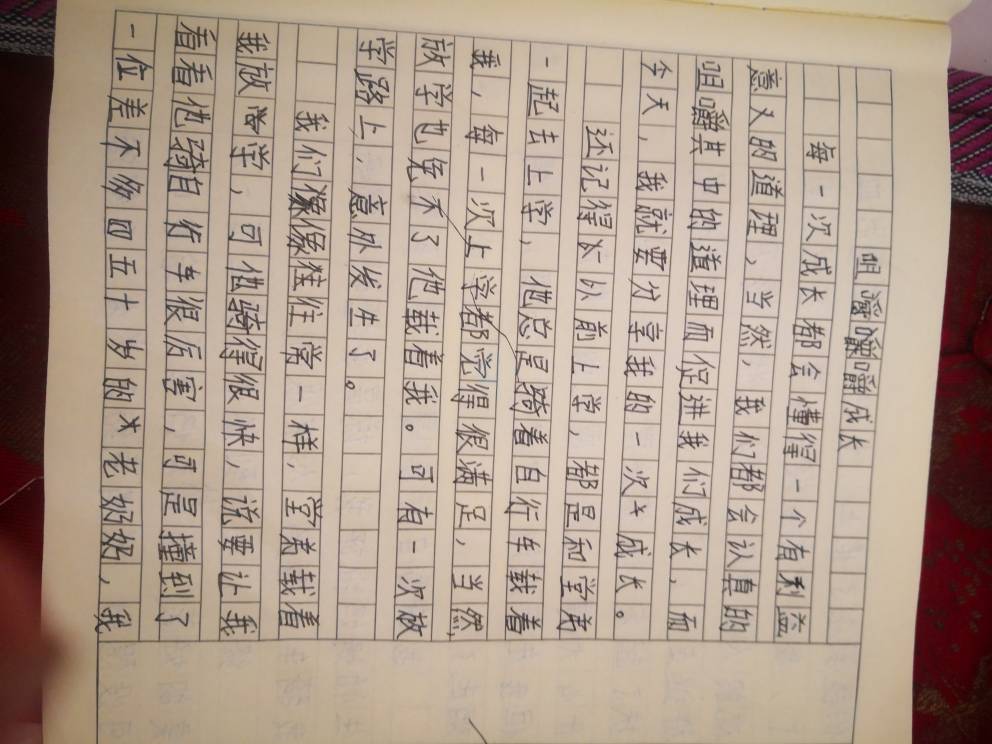 咀嚼成长
每一次成长都会懂得一个有利益
意义的道理，当然，我们都会认真的
咀嚼其中的道理而促进我们成长，而
今天，我就要分享我的一次成长。
还记得以前上学，都是和堂弟
一起去上学，他总是骑着自行车载着
我，每一次上学都觉得很满足，当然，
放学也免不了他载着我。可有一次放
学路上，意外发生了。
我们像往常一样，堂弟载着
我放学，可他骑得很快，说要让我
看看他骑自行车很厉害，可是撞到了
一位差不多四五十岁的老奶奶，我